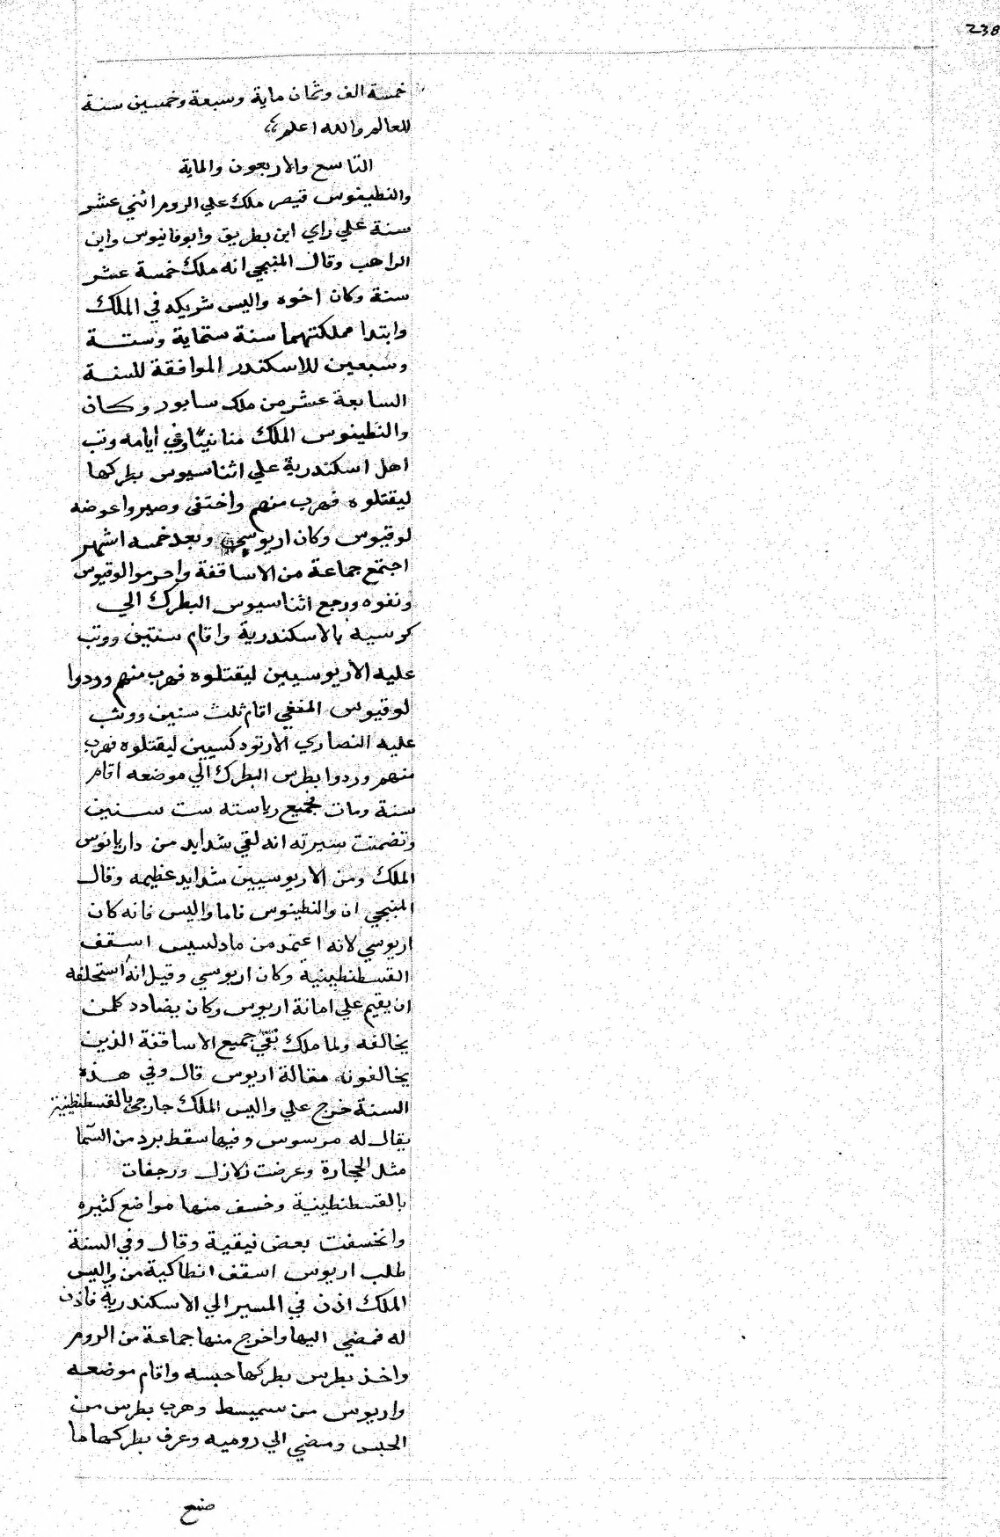 238
خمسة الف وثمان ماية وسبعة وخمسين سنة
للعالم والله اعلم
التاسع والاربعون والماية
والنطينوس قيصر ملك علي الروم اثني عشر
سنة علي راي ابن بطريق وابوفانيوس وابن
الراهب وقال المنبجي انه ملك خمسة عشر
سنة وكان اخوه واليس شريكه في الملك
وابتدا مملكتهما سنة ستماية وستة
وسبعين للاسكندر الموافقة للسنة
السابعة عشر من ملك سابور وكان
والنطينوس الملك منانيا وفي ايامه وتب
اهل اسكندرية علي اثناسيوس بطركها
ليقتلوه فهرب منهم واختفي وصيروا عوضه
لوقيوس وكان اريوسي وبعد خمسه اشهر
اجتمع جماعة من الاساقفة واحرموا لوقيوس
ونفوه ورجع اثناسيوس البطرك الي
كرسيه بالاسكندرية واقام سنتين ووتب
عليه الاريوسيين ليقتلوه فهرب منهم وردوا
لوقيوس المنفي اقام ثلث سنين ووثب
عليه النصاري الارتودكسيين ليقتلوه فهرب
منهم وردوا بطرس البطرك الي موضعه اقام
سنة ومات فجميع رياسته ست سنين
وتضمنت سيرته انه لقي شدايد من داريانوس
الملك ومن الاريوسيين شدايد عظيمه وقال
المنبجي ان والنطينوس فاما واليس فانه كان
اريوسي لانه اعتمد من مادلسيس اسقف
القسطنطينية وكان اريوسي وقيل انه استحلفه
ان يقيم علي امانة اريوس وكان يضادد كلمن
يخالفه ولما ملك نفي جميع الاساقفة الذين
يخالفونه مقالة اريوس قال وفي هذه
السنة خرج علي واليس الملك خارجي بالقسطنطينية
يقال له مرسوس وفيها سقط برد من السما
مثل الحجارة وعرضت زلازل ورجفات
بالقسطنطينية وخسف منها مواضع كثيره
وانخسفت بعض نيقية وقال وفي السنة
طلب اريوس اسقف انطاكية من واليس
الملك اذن في المسير الي الاسكندرية فاذن
له فمضي اليها واخرج منها جماعة من الروم
واخذ بطرس بطركها حبسه واقام موضعه
واريوس من سميسط وهرب بطرس من
الحبس ومضي الي روميه وعرف بطركها ما
صنع